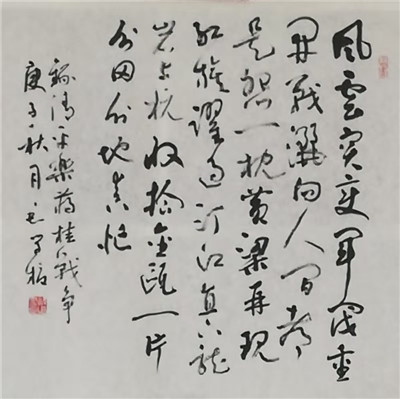 風雲突变軍阀重
開战灑向人间都
是怨一枕黄粱再現
红旗躍过汀江直下龍
岩上杭收拾金瓯一片
分田分地真忙
錄清平樂蒋桂战争
庚子秋月